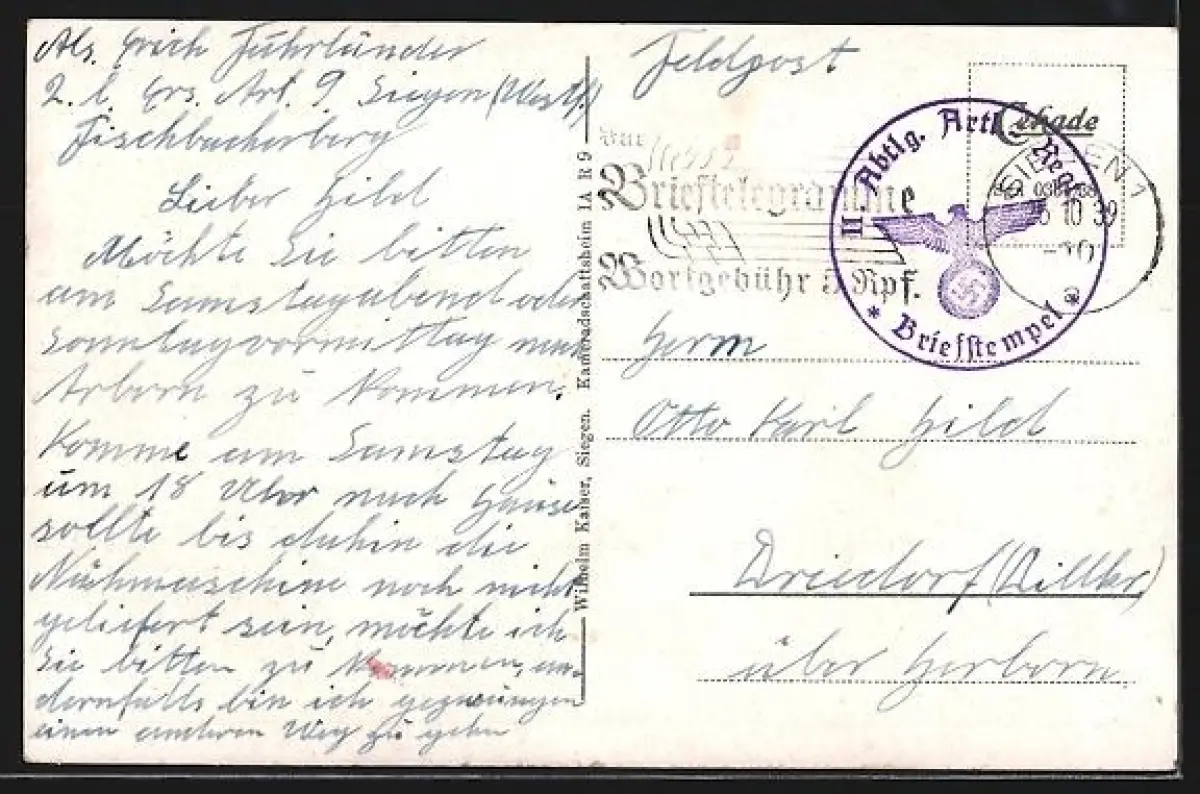 Abs. Erich Fuhrländer
2. l. Ers. Art. 9 Siegen (Westf.)
Fischbacherberg
Lieber Hild
Möchte Sie bitten
am Samstagabend oder
Sonntagvormittag nach
Arborn zu kommen.
Komme am Samstag
um 18 Uhr nach Hause
sollte bis dahin die
Nähmaschine noch nicht
geliefert sein, möchte ich
Sie bitten zu kommen, an-
dernfalls bin ich gezwungen
einen anderen Weg zu gehen
Wilhelm Kaiser, Siegen. Kameradschaftsheim IA R 9
Feldpost
Cekade
Nur
Brieftelegramme
Wortgebühr 5 Rpf.
II Abtlg. Artl. Regt.
* Briefstempel *
SIEGEN 1
10 39
Herrn
Otto Karl Hild
Driedorf (Dillkr)
über Herborn.